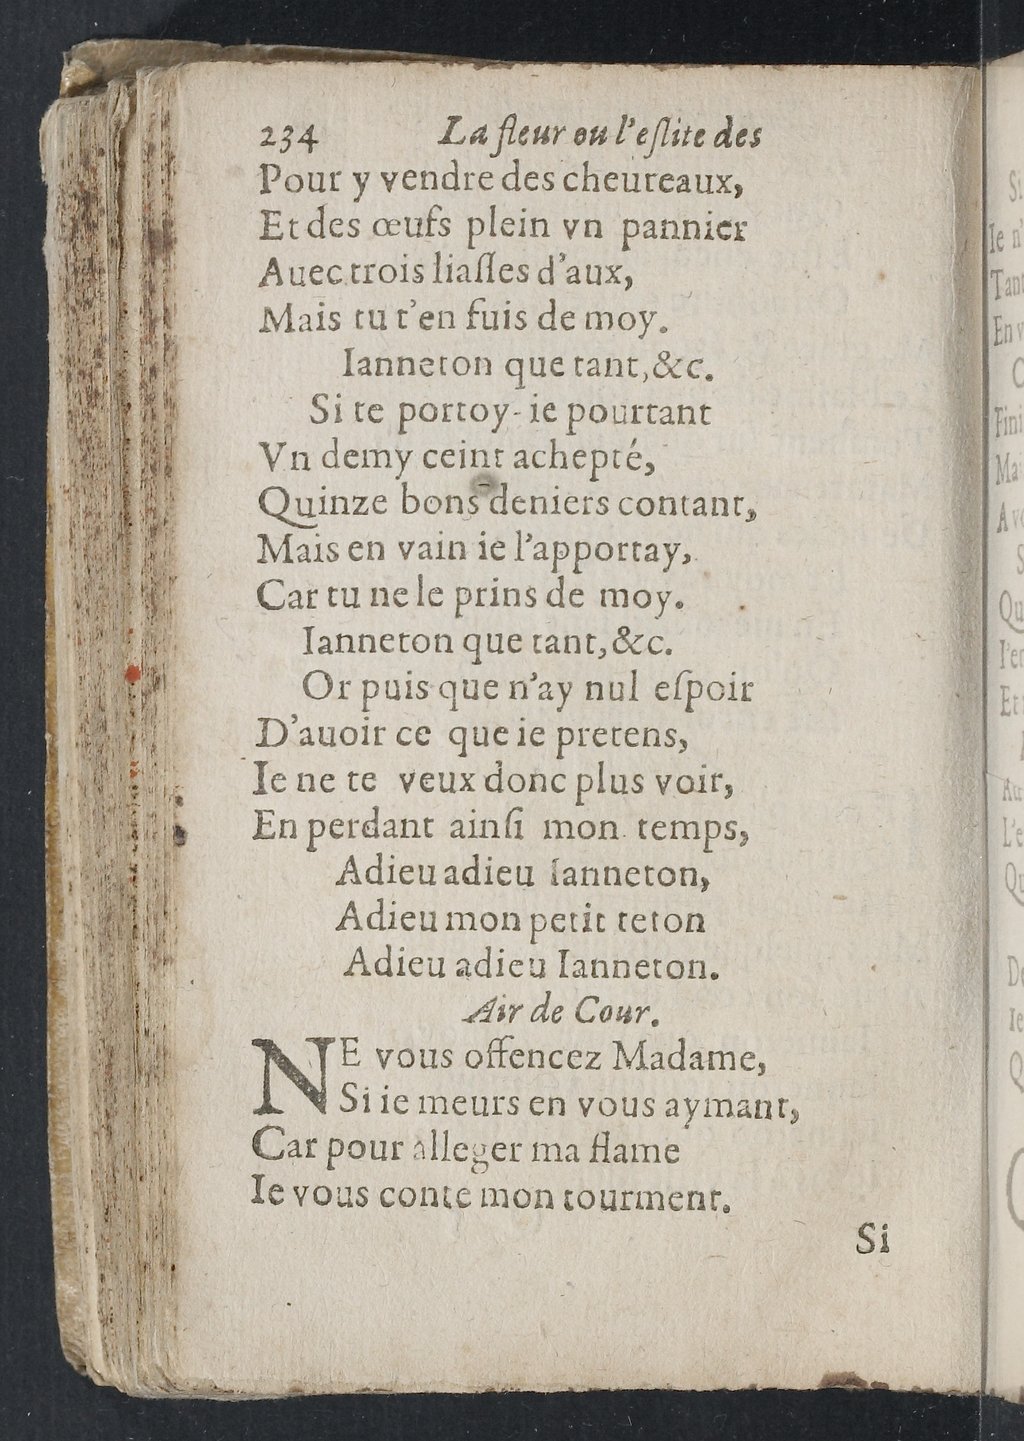 234 La fleur ou l'eſlite des
Pour y vendre des cheureaux,
Et des œufs plein vn pannier
Auec trois liaſſes d'aux,
Mais tu t'en fuis de moy.
Ianneton que tant, &c.
Si te portoy-ie pourtant
Vn demy ceint achepté,
Quinze bons deniers contant,
Mais en vain ie l'apportay,
Car tu ne le prins de moy.
Ianneton que tant, &c.
Or puis que n'ay nul eſpoir
D'auoir ce que ie pretens,
Ie ne te veux donc plus voir,
En perdant ainſi mon temps,
Adieu adieu Ianneton,
Adieu mon petit teton
Adieu adieu Ianneton.
Air de Cour.
NE vous offencez Madame,
Si ie meurs en vous aymant,
Car pour alleger ma flame
Ie vous conte mon tourment.
Si